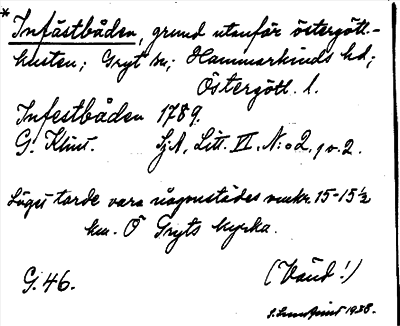 * Infästbåden, grund utanför östergött.-
kusten; Gryt sn; Hammarkinds hd;
Östergötl. l.
Infestbåden 1789.
G. Klint. SjA, Litt. VI. N:o 2, 
Läget torde vara någonstädes omkr. 15-15½
km. Ö Gryts kyrka.
G. 46. (Vänd!)
1938.